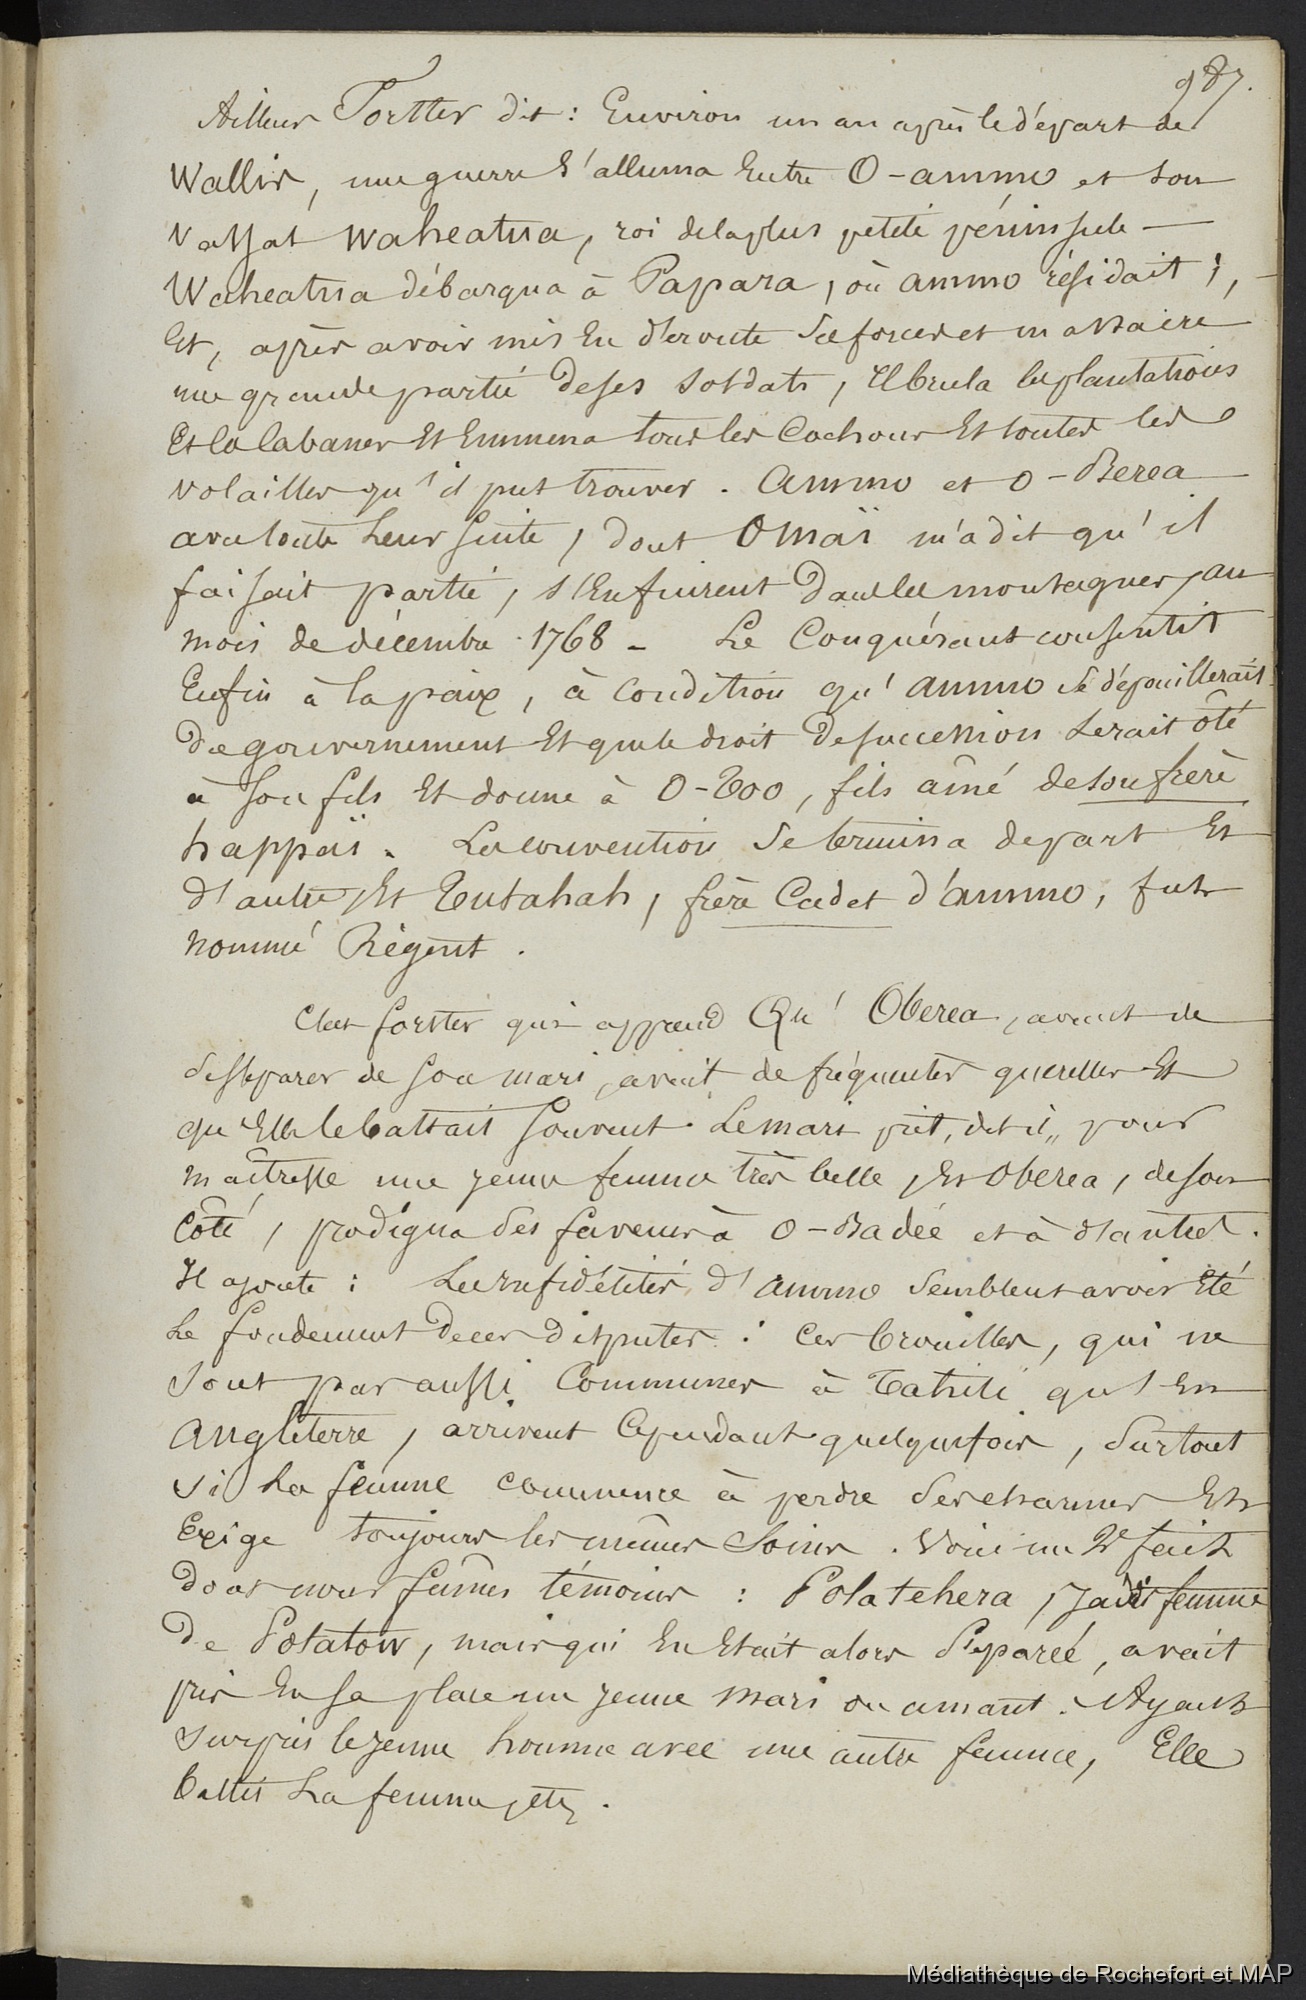 987.
Ailleurs Forster dit : Environ un an après le départ de
Wallis, une guerre s'alluma Entre O-ammo et son
vassal Waheatua, roi de la plus petite péninsule —
Waheatua débarqua à Papara, où ammo résidait ;
Et, après avoir mis En déroute ses forces et massacré
une grande partie de ses soldats, Il brula les plantations
Et les Cabanes Et Emmena tous les Cochons Et toutes les
volailles qu'il put trouver. Ammo et O-Berea
avec toute Leur suite, dont Omaï m'a dit qu'il
faisait partie, s'Enfuirent dans les montagnes, au
mois de décembre 1768 - Le Conquérant consentit
Enfin à la paix, à condition qu'ammo se dépouillerait
du gouvernement Et que le droit de succession serait ôté
à son fils Et donné à O-Too, fils aîné de son frère
happaï. La convention se termina de part Et
d'autre, Et Tutahah, frère Cadet d'ammo, fut
nommé Régent.
C'est forster qui apprend Qu'Oberea, avant de
se séparer de son mari, avait de fréquentes querelles Et
qu'Elle le battait souvent. Le mari prit, dit-il,, pour
maîtresse une jeune femme très belle, Et Oberea, de son
Côté, prodigua ses faveurs à O-Badée et à d'autres.
Il ajoute : Les infidélités d'ammo semblent avoir Eté
Le fondement de ces disputes : Ces brouilles, qui ne
sont pas aussi Communes à Tahiti qu'En
Angleterre, arrivent Cependant quelquefois, surtout
si La femme commence à perdre ses charmes Et
Exige toujours les mêmes soins. Voici un 2e fait
dont nous fûmes témoins : Polatehera, jadis femme
de Potatow, mais qui En Etait alors séparée, avait
pris En sa place un jeune mari ou amant. Ayant
surpris le jeune homme avec une autre femme, Elle
battit La femme, etc.
Médiathèque de Rochefort et MAP